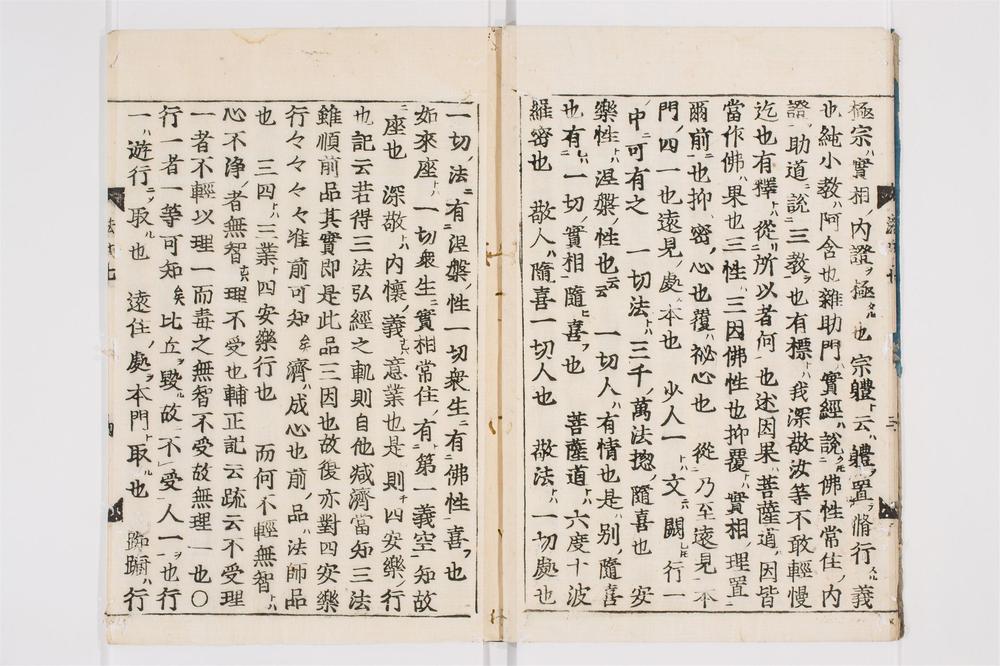 極宗ハ實相ノ内證ヲ極タル也 宗體ト云ハ體ヲ置ヲ脩行スル義
也純小教ハ阿含也雜助門ハ實經ハ説クモ佛性常住ノ内
證ノ助道ニ説ニ三教ヲ也有標トハ我深敬汝等不敢輕慢
迄也有釋トハ從リ所以者何ニ也述因果ハ菩薩道ノ因皆
當作佛ハ果也三性ハ三因佛性也抑覆トハ實相ノ理置ニ
爾前ニ也抑ノ密ノ心也覆ハ祕心也 從ニ乃至遠見ハ本
門ノ四一也遠見ノ處ハ本也 少人一トハ文ニ闕レトモ行一
ノ中ニ可有之 一切法トハ三千ノ萬法揔ノ隨喜也 安
樂性トハ涅槃ノ性也云云 一切人ハ有情也是ハ別ノ隨喜
也有ニハ一切ノ實相ニ隨ヒ喜フ也 菩薩道トハ六度十波
羅密也 敬人トハ隨喜一切人也 敬法トハ一切處也
一切ノ法ニ有ニ涅槃ノ性一切衆生ニ有ニ佛性ノ喜フ也
如來座トハ一切衆生ニ實相常住ノ有ト第一義空ノ知故
ニ座也 深敬トハ内懷ノ義意業也是則チ四安樂ノ行
也記云若得三法弘經之軌則自他減濟當知三法
雖順前品其實即是此品三因也故復亦對四安樂
行々々々准前可知矣 濟ハ成心也前ノ品ハ法師品
也 三四トハ三業ト四安樂行也 而何不輕無智トハ
心不淨ノ者無智ナリ理不受也輔正記云疏云不受理
一者不輕以理一而毒之無智不受故無理一也〇
行一者一等可知矣比丘ヲ毀ル故ニ不受人一ヲ也行
一ハ遊行ニヲ取ル也 遠住ノ處ヲ本門ト取ル也 踟蹰ハ行